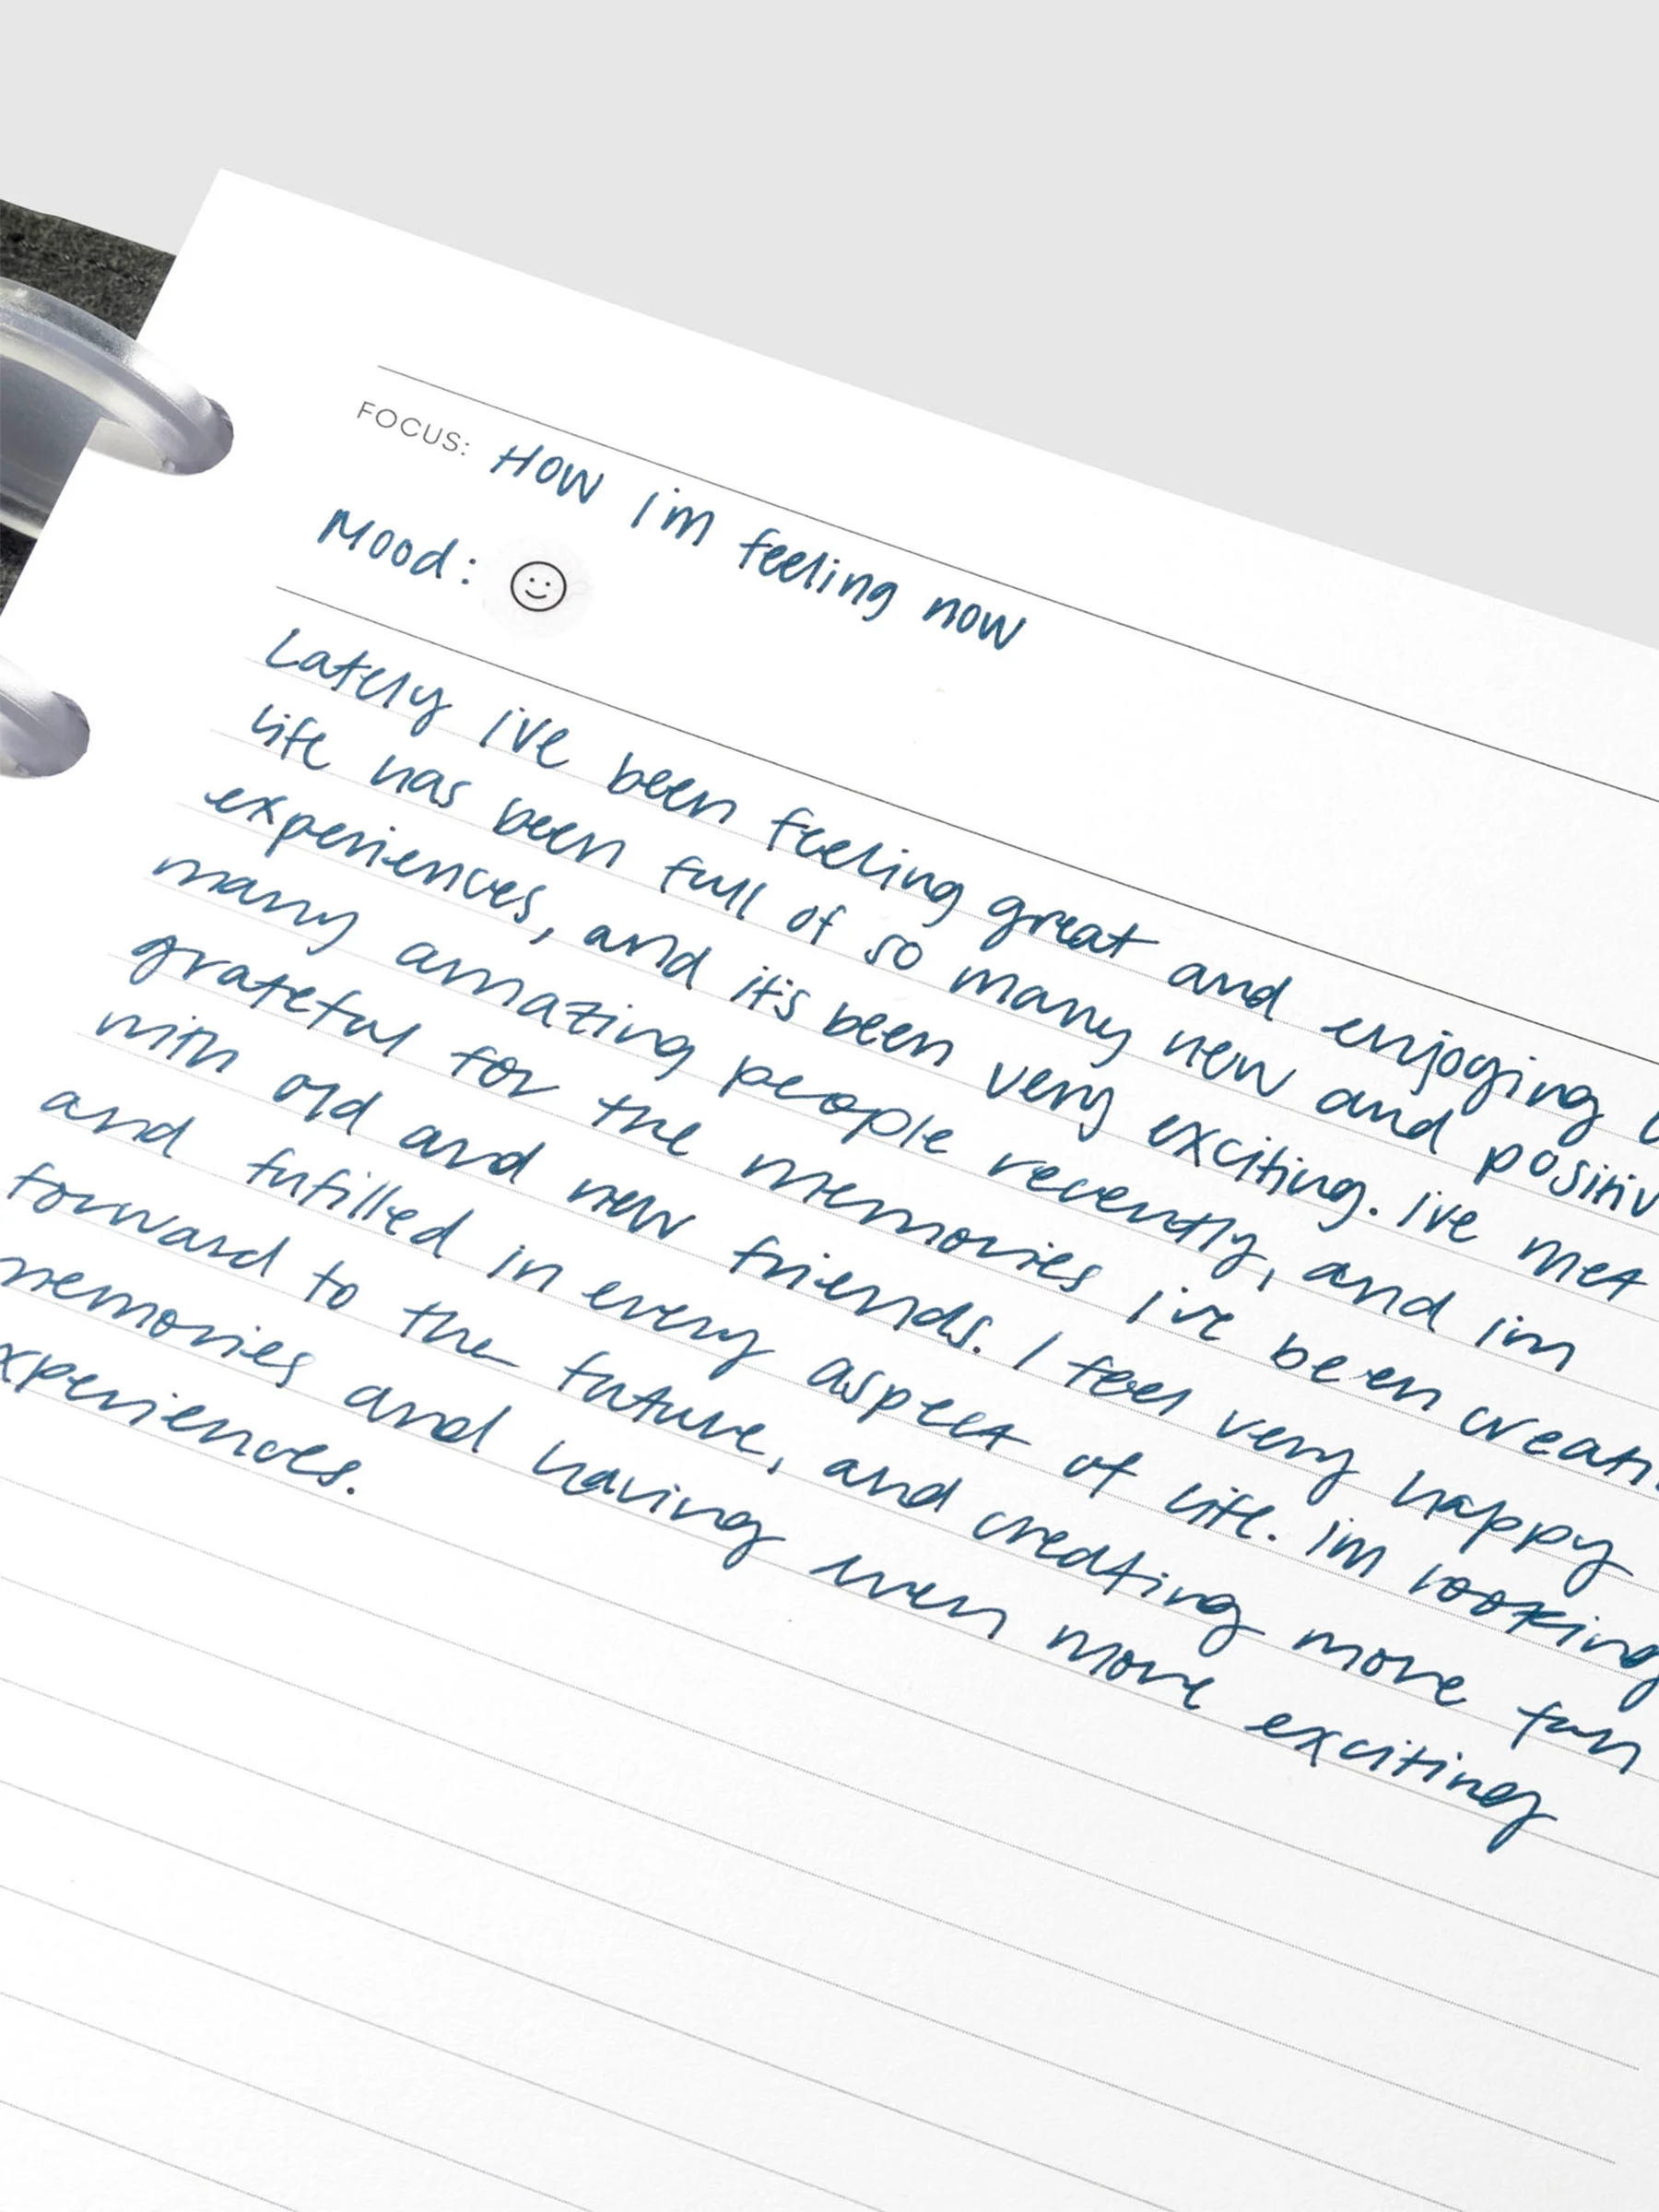 FOCUS: How i'm feeling now
Mood:
Lately i've been feeling great and enjoying
life has been full of so many new and positiv
experiences, and it's been very exciting. i've met
many amazing people recently, and im
grateful for the memories i've been creati
with old and new friends. I feel very happy
and fufilled in every aspect of life. im looking
forward to the future, and creating more fun
memories and having even more exciting
xperiences.